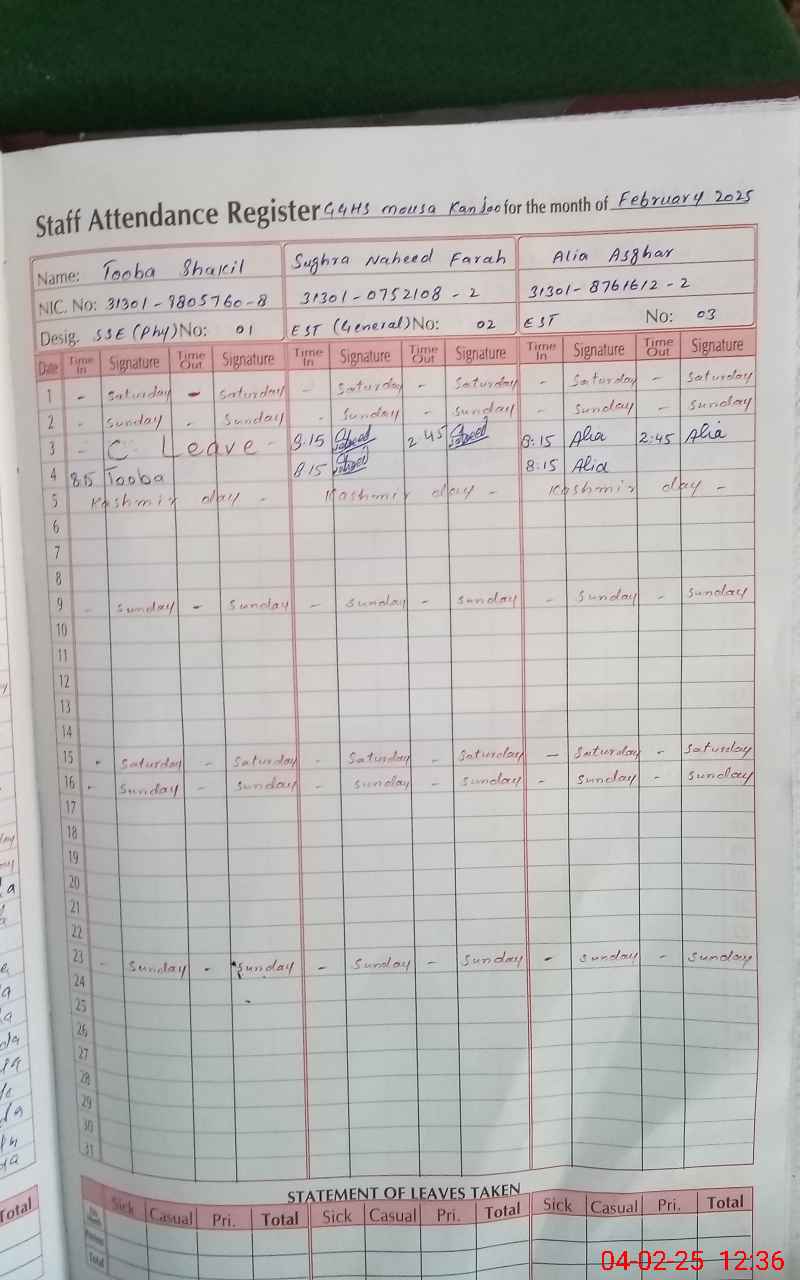 Staff Attendance Register GGHS mousa Kanjoo for the month of February 2025
Name: Tooba Shakil Sughra Naheed Farah Alia Asghar
NIC. No: 31301-9805760-8 31301-0752108-2 31301-8761612-2
Desig. SSE (Phy) No: 01 EST (General) No: 02 EST No: 03
Date Time In Signature Time Out Signature Time In Signature Time Out Signature Time In Signature Time Out Signature
1 - Saturday - Saturday - Saturday - Saturday - Saturday - Saturday
2 - Sunday - Sunday - Sunday - Sunday - Sunday - Sunday
3 - C. Leave - 8:15 2 45 8:15 Alia 2:45 Alia
4 8:15 Tooba 8 15 8:15 Alia
5 Kashmir day - Kashmir day - Kashmir day -
6
7
8
9 - Sunday - Sunday - Sunday - Sunday - Sunday - Sunday
10
11
12
13
14
15 - Saturday - Saturday - Saturday - Saturday - Saturday - Saturday
16 - Sunday - Sunday - Sunday - Sunday - Sunday - Sunday
17
18
19
20
21
22
23 - Sunday - Sunday - Sunday - Sunday - Sunday - Sunday
24
25
26
27
28
29
30
31
STATEMENT OF LEAVES TAKEN
Sick Casual Pri. Total Sick Casual Pri. Total Sick Casual Pri. Total
Total
Total
04-02-25 12:36